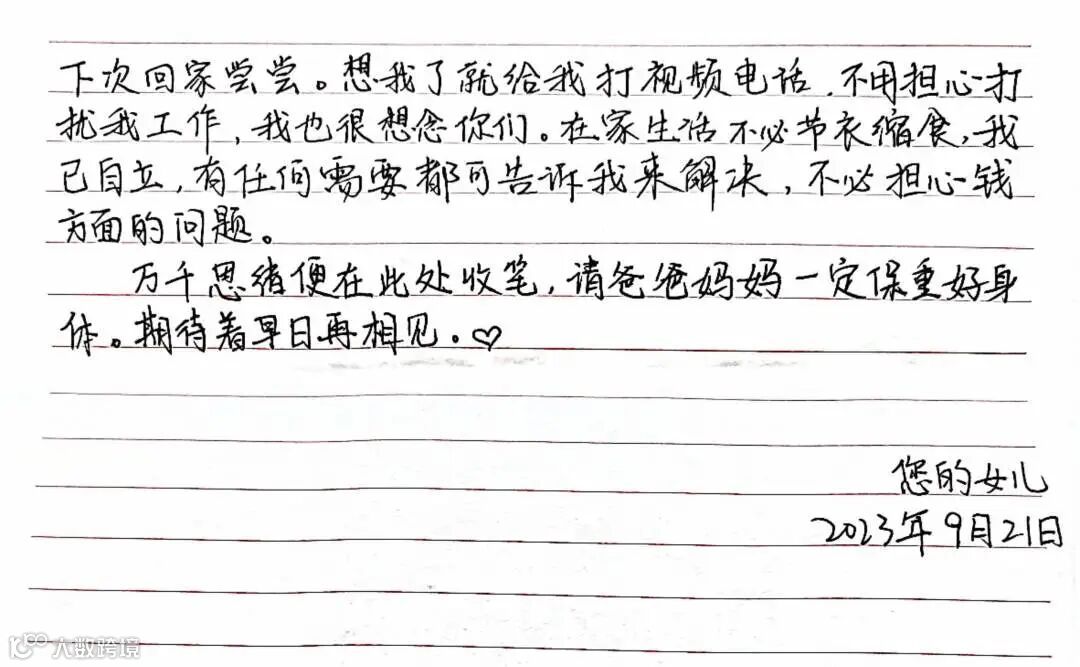 下次回家尝尝。想我了就给我打视频电话，不用担心打
扰我工作，我也很想念你们。在家生活不必节衣缩食，我
已自立，有任何需要都可告诉我来解决，不必担心钱
方面的问题。
万千思绪便在此处收笔，请爸爸妈妈一定保重好身
体。期待着早日再相见。♡
您的女儿
2023年9月21日
大数跨境